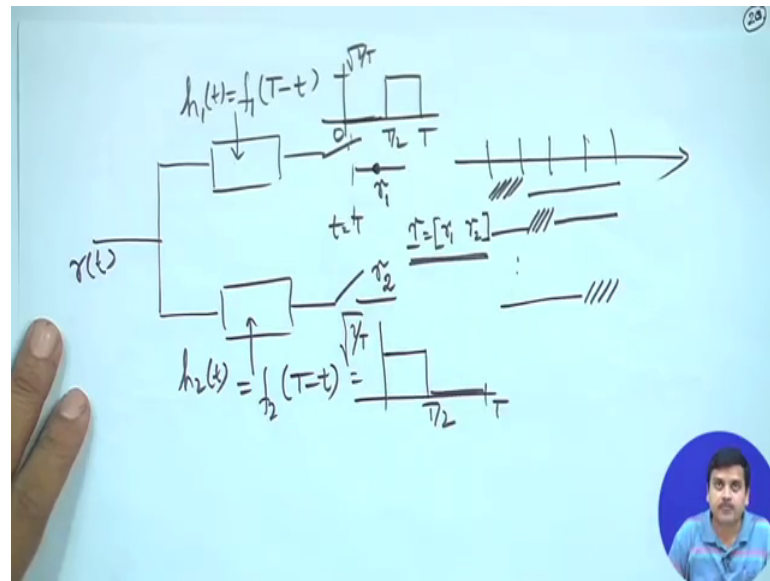 20
h₁(t) = f₁(T-t)
√2/T
0 T/2 T
r₁
t=T
r(t)
r = [r₁ r₂]
r₂
h₂(t) = f₂(T-t) =
√2/T
T/2 T